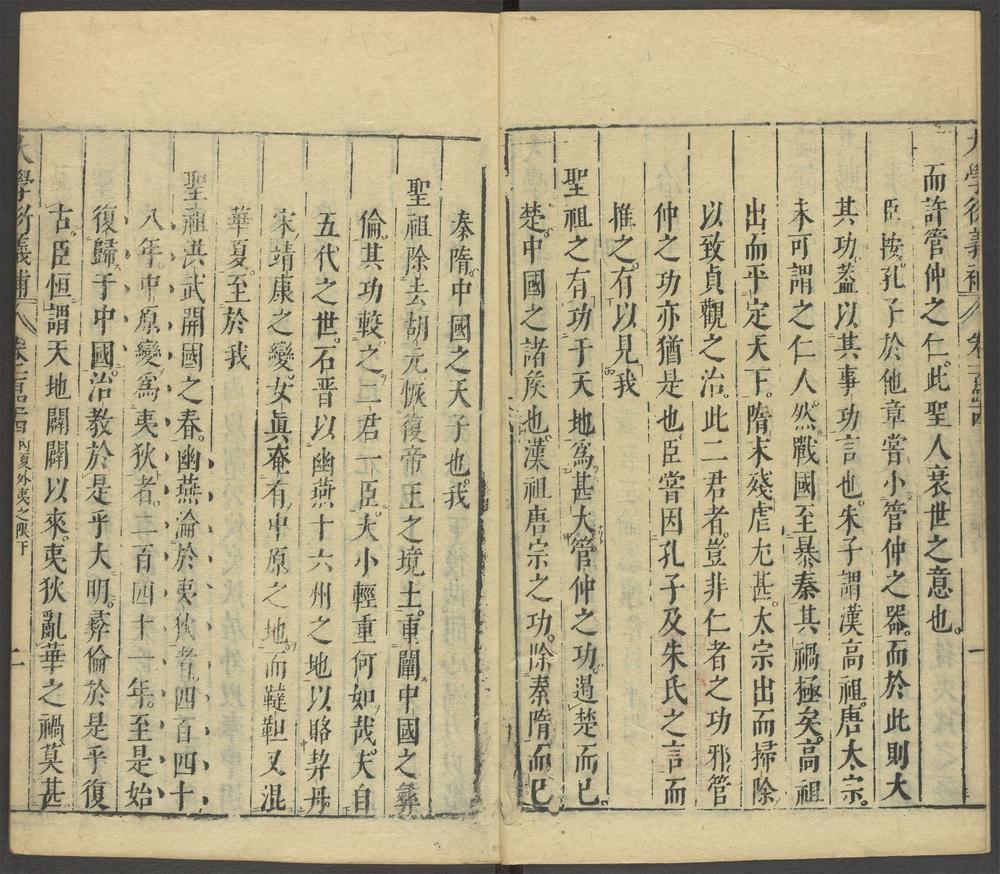 大學衍義補 卷一百四十四 一
而許管仲之仁此聖人衰世之意也
臣按孔子於他章嘗小管仲之器而於此則大
其功蓋以其事功言也朱子謂漢高祖唐太宗
未可謂之仁人然戰國至暴秦其禍極矣高祖
出而平定天下隋末殘虐尤甚太宗出而掃除
以致貞觀之治此二君者豈非仁者之功邪管
仲之功亦猶是也臣嘗因孔子及朱氏之言而
推之有以見我
聖祖之有功于天地爲甚大管仲之功遏楚而已
楚中國之諸侯也漢祖唐宗之功除秦隋而已
秦隋中國之天子也我
聖祖除去胡元恢復帝王之境土重闡中國之彝
倫其功較之二君一臣大小輕重何如哉夫自
五代之世石晋以幽燕十六州之地以賂契丹
宋靖康之變女眞奄有中原之地而韃靼又混
華夏至於我
聖祖洪武開國之春幽燕淪於夷狄者四百四十
八年中原變爲夷狄者二百四十一年至是始
復歸于中國治教於是乎大明彝倫於是乎復
古臣恒謂天地開闢以來夷狄亂華之禍莫甚
大學衍義補 卷一百四十四 內夏外夷之限下 二